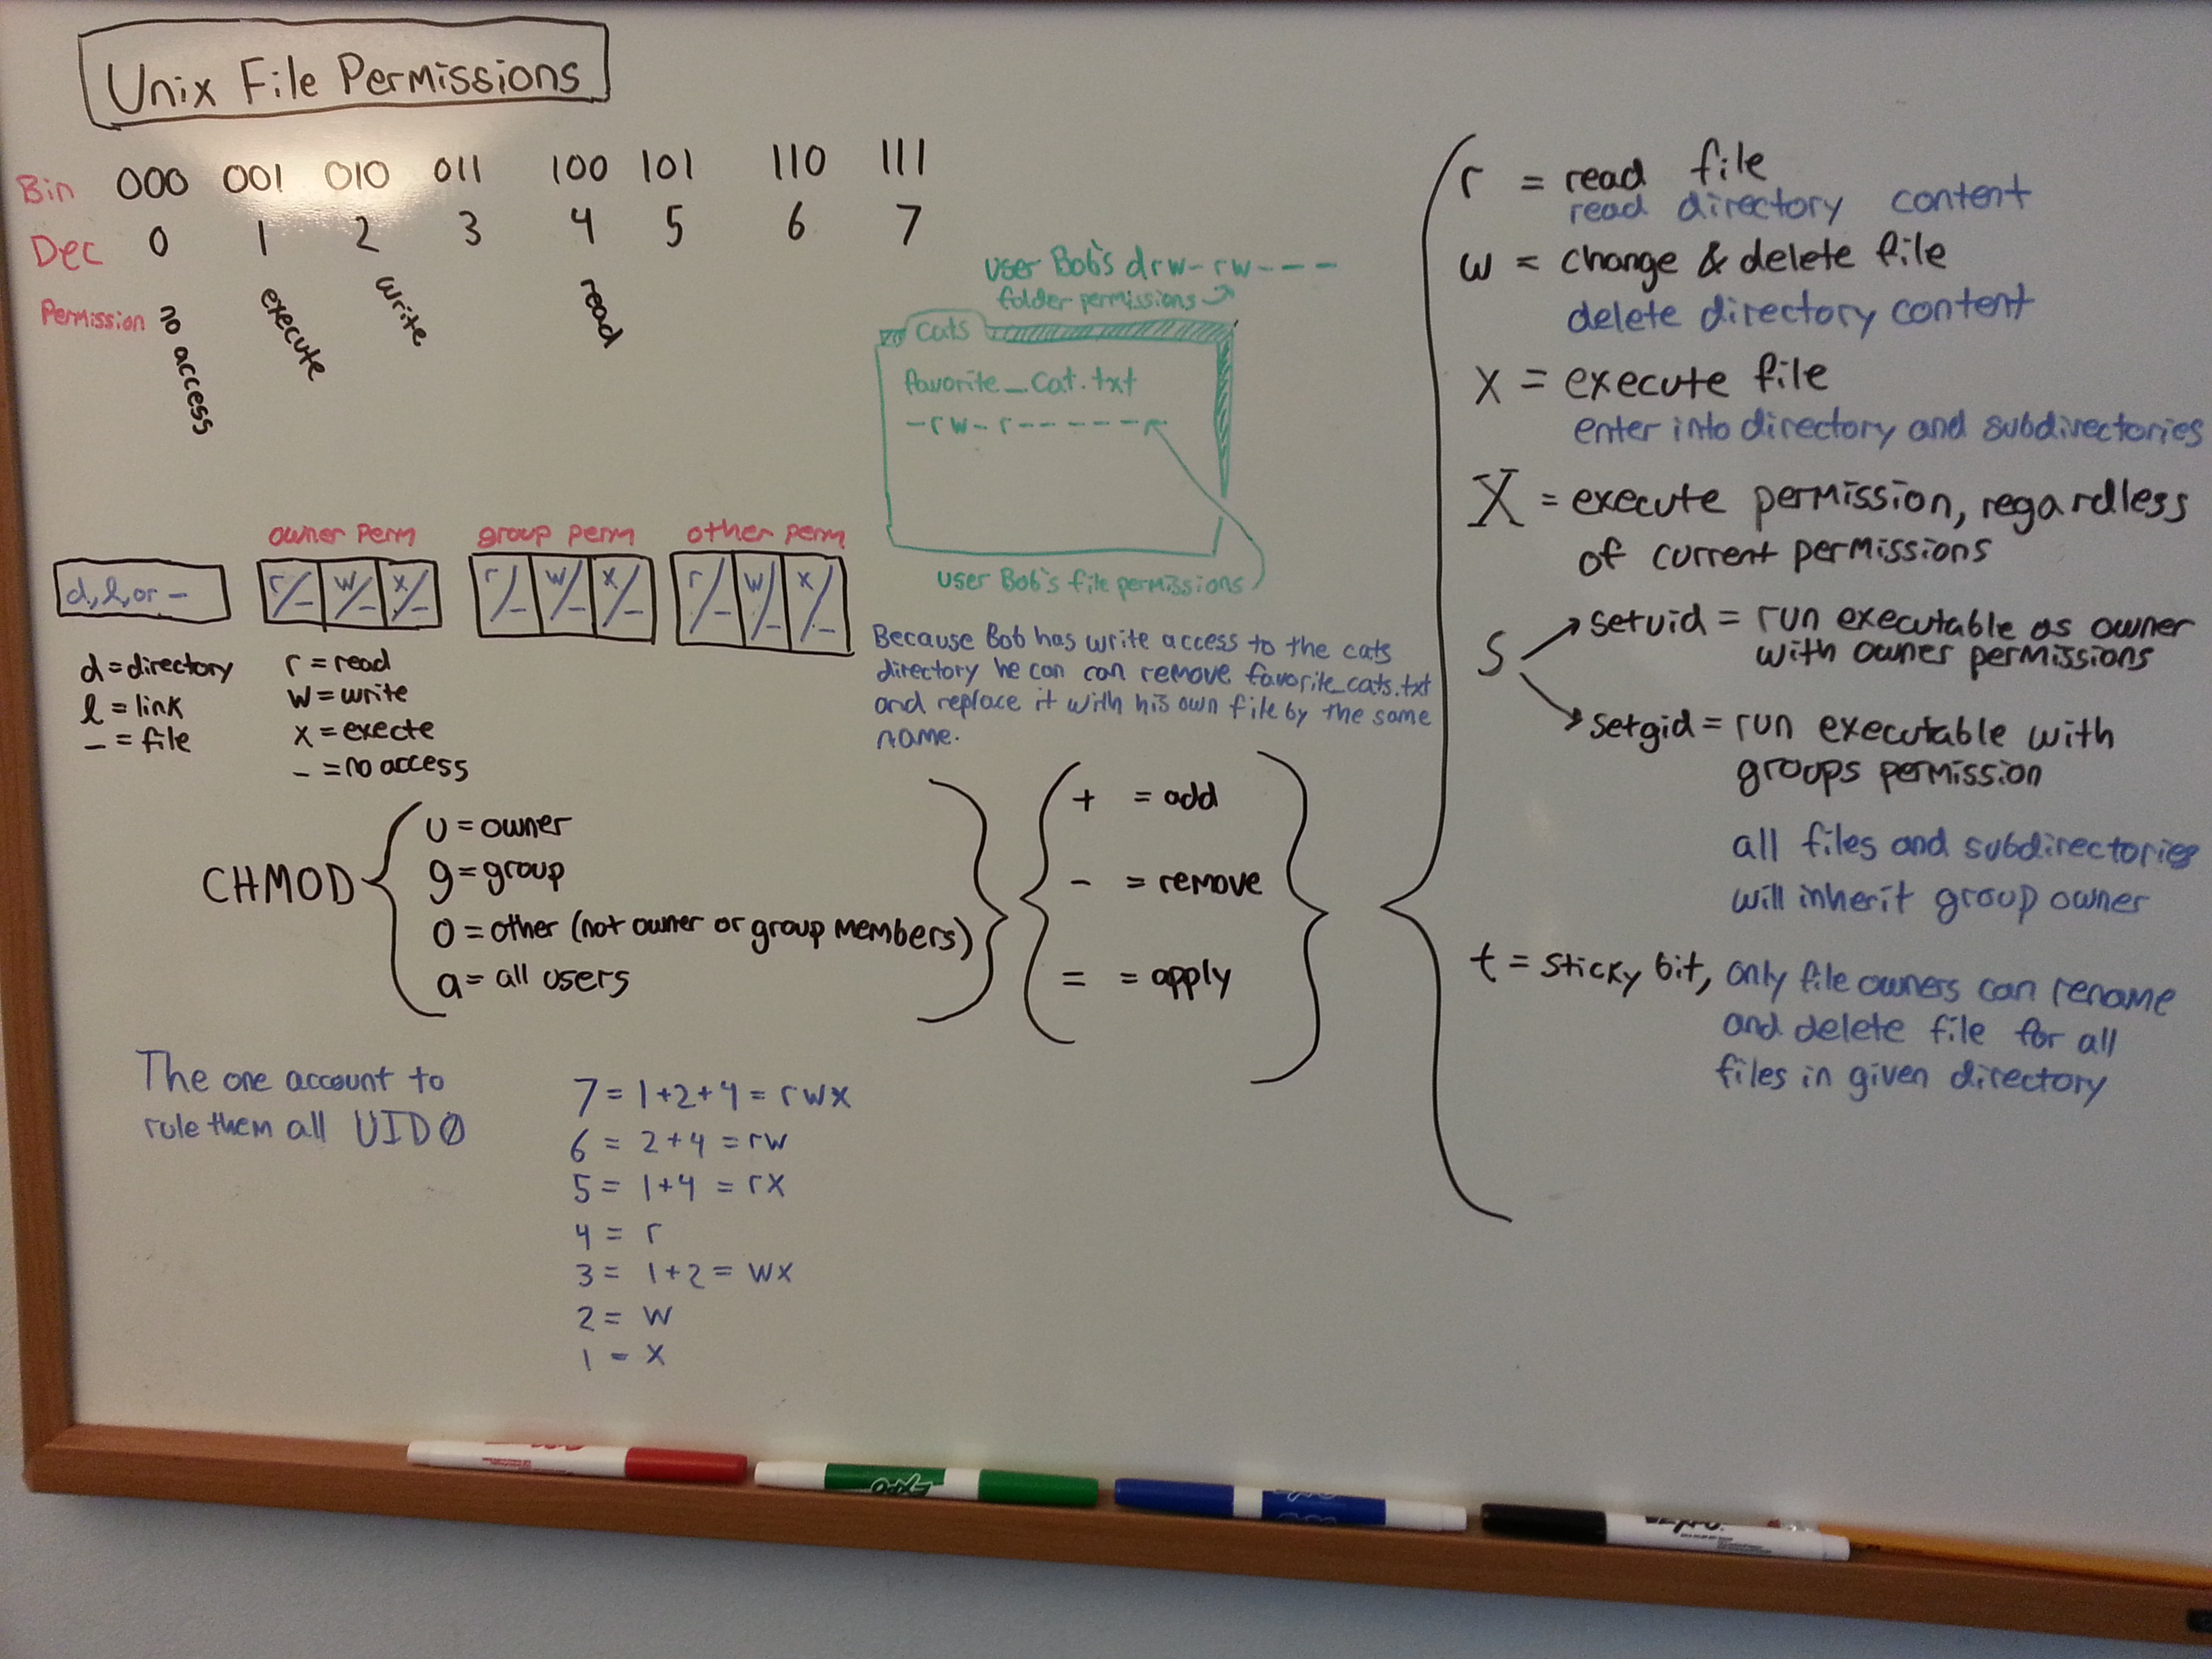 Unix File Permissions
Bin 000 001 010 011 100 101 110 111
Dec 0 1 2 3 4 5 6 7
Permission no access execute write read
user Bob's drw-rw----
folder permissions
cats
favorite_cat.txt
-rw-r------
user Bob's file permissions
Because Bob has write access to the cats
directory he can can remove favorite_cats.txt
and replace it with his own file by the same
name.
owner perm group perm other perm
d, l, or - r/- w/- x/- r/- w/- x/- r/- w/- x/-
d = directory
l = link
- = file
r = read
w = write
x = execte
- = no access
CHMOD
u = owner
g = group
o = other (not owner or group members)
a = all users
+ = add
- = remove
= = apply
r = read file
read directory content
w = change & delete file
delete directory content
x = execute file
enter into directory and subdirectories
X = execute permission, regardless
of current permissions
s
setuid = run executable as owner
with owner permissions
setgid = run executable with
groups permission
all files and subdirectories
will inherit group owner
t = sticky bit, only file owners can rename
and delete file for all
files in given directory
The one account to
rule them all UID0
7 = 1+2+4 = rwx
6 = 2+4 = rw
5 = 1+4 = rx
4 = r
3 = 1+2 = wx
2 = w
1 = x
EXPO